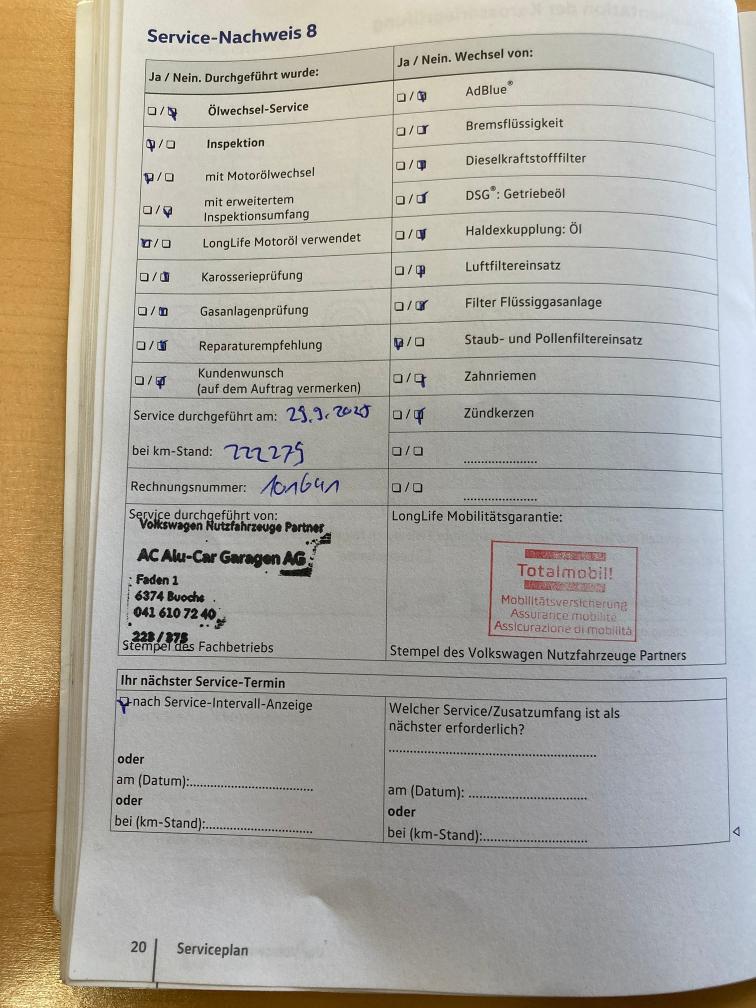 Service-Nachweis 8
Ja / Nein. Durchgeführt wurde:
☐ / ☑ Ölwechsel-Service
☑ / ☐ Inspektion
☑ / ☐ mit Motorölwechsel
☐ / ☑ mit erweitertem
Inspektionsumfang
☑ / ☐ LongLife Motoröl verwendet
☐ / ☑ Karosserieprüfung
☐ / ☑ Gasanlagenprüfung
☐ / ☑ Reparaturempfehlung
☐ / ☑ Kundenwunsch
(auf dem Auftrag vermerken)
Service durchgeführt am: 29.9.2025
bei km-Stand: 222279
Rechnungsnummer: 101641
Service durchgeführt von:
Volkswagen Nutzfahrzeuge Partner
AC Alu-Car Garagen AG
Faden 1
6374 Buochs
041 610 72 40
223 / 878
Stempel des Fachbetriebs
Ja / Nein. Wechsel von:
☐ / ☑ AdBlue®
☐ / ☑ Bremsflüssigkeit
☐ / ☑ Dieselkraftstofffilter
☐ / ☑ DSG®: Getriebeöl
☐ / ☑ Haldexkupplung: Öl
☐ / ☑ Luftfiltereinsatz
☐ / ☑ Filter Flüssiggasanlage
☑ / ☐ Staub- und Pollenfiltereinsatz
☐ / ☑ Zahnriemen
☐ / ☑ Zündkerzen
☐ / ☐ ....................
☐ / ☐ ....................
LongLife Mobilitätsgarantie:
Totalmobil!
Mobilitätsversicherung
Assurance mobilité
Assicurazione di mobilità
Stempel des Volkswagen Nutzfahrzeuge Partners
Ihr nächster Service-Termin
☑ nach Service-Intervall-Anzeige
oder
am (Datum):..............................
oder
bei (km-Stand):..............................
Welcher Service/Zusatzumfang ist als
nächster erforderlich?
..................................................
am (Datum): ..............................
oder
bei (km-Stand):..............................
20
Serviceplan